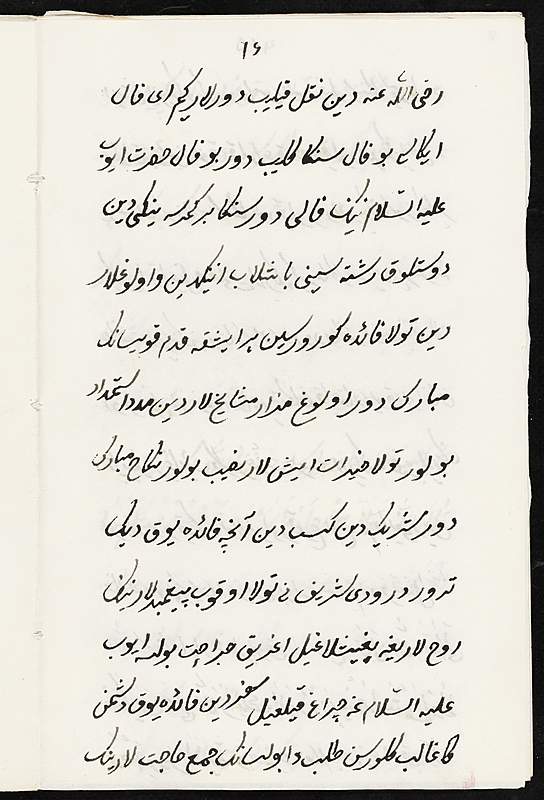 ١٤
رضی الله عنه دین نقل قیلیب دورلار کیم ای فال
ایکاسی بو فال سنکا کلیب دور بو فال حضرت ایوب
علیه السّلام نینک فالی دور سنکا بر کمرسه ینکی دین
دوستلوق رشته سینی باشلاب اتیکدین و اولوغلار
دین تولا فائده کورورسین هر ایشقه قدم قویسانک
مبارک دور اولوغ مزار مشایخ لاردین مدد استمداد
بولور تولا خیرات ایش لار نصیب بولور نکاح مبارک
دور شریک دین کسب دین آنچه فائده یوق دیک
تدور درودی شریف نی تولا اوقوب پیغمبرلار نینک
روح لاریغه بغیشلاغیل اغریق جراحت بولسه ایوب
علیه السّلام غه چراغ قیلغیل سفردین فائده یوق دشمن
کا غالب کلورسن طلب دا بولسانک جمع حاجت لارینک